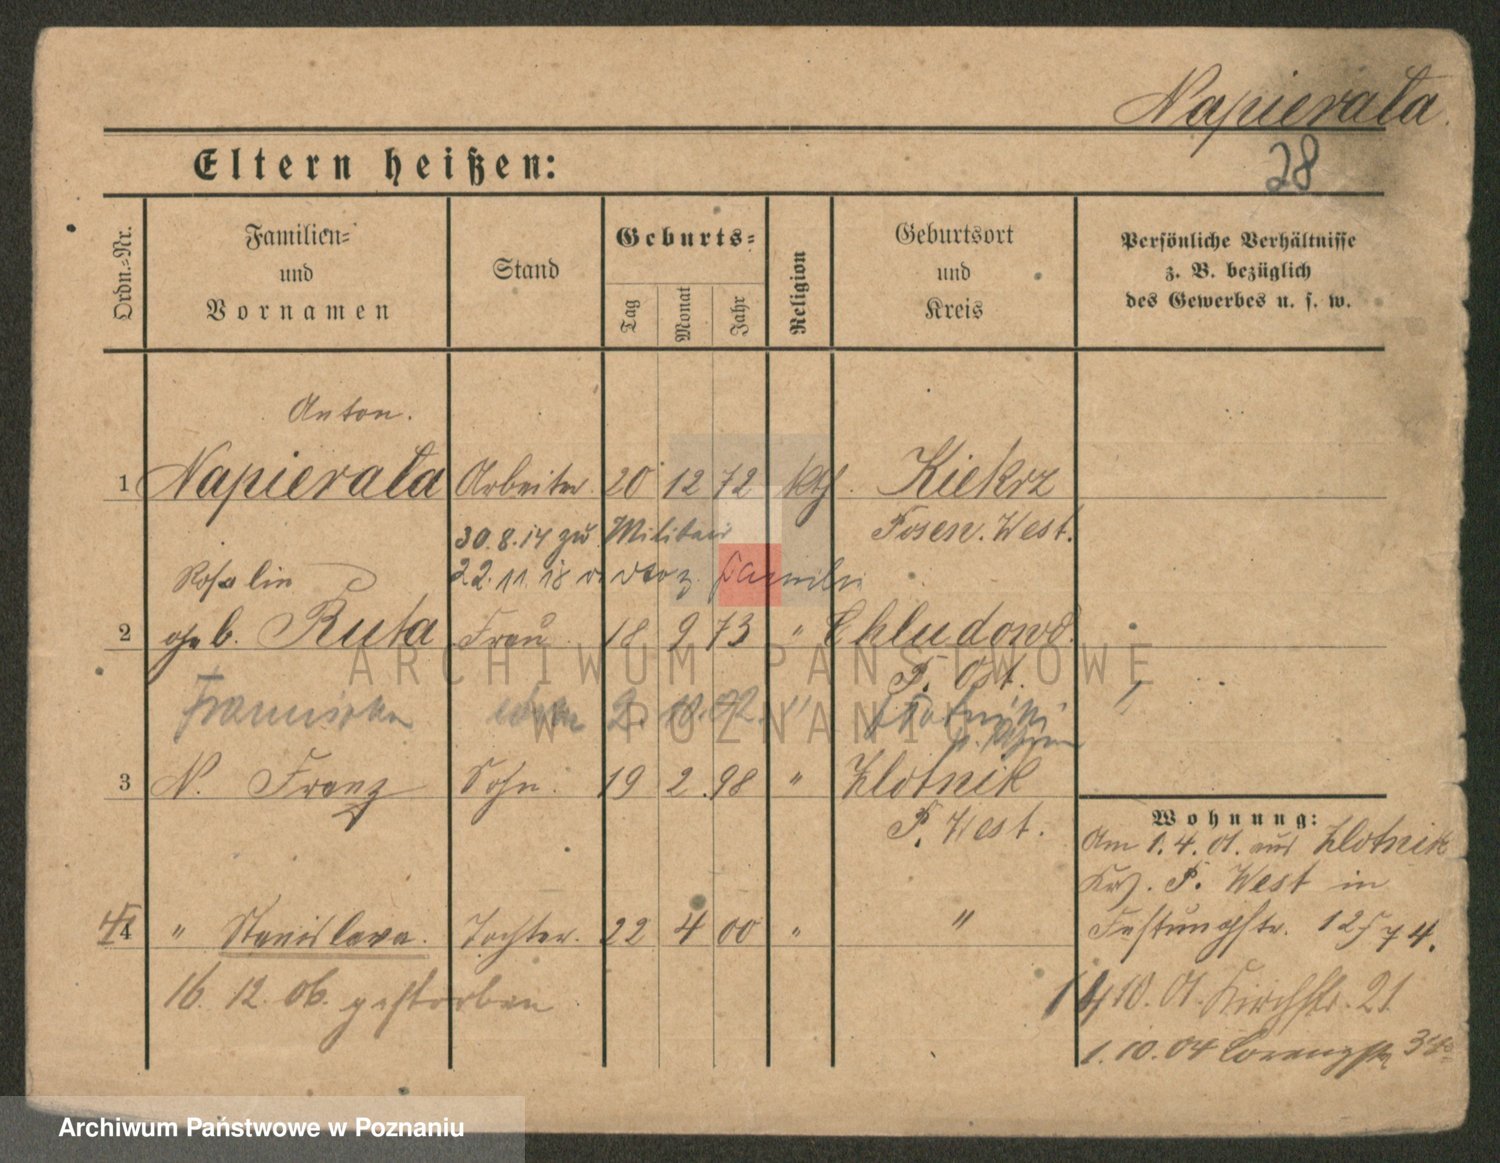 Napierała.
28
Eltern heißen:
Ordn.-Nr.
Familien-
und
Vornamen
Stand
Geburts-
Tag
Monat
Jahr
Religion
Geburtsort
und
Kreis
Persönliche Verhältnisse
z. B. bezüglich
des Gewerbes u. s. w.
Anton.
1 Napierała Arbeiter. 20 12 72 kth. Kiekrz
30.8.14 zu Militär Posen. West.
Rosalie 22.11.18 v. z. Familie
2 geb. Ruta Frau 18 9 73 " Chludowo.
P. Ost.
ARCHIWUM PAŃSTWOWE
W POZNANIU
Franziska 2. 10.02. "
3 N. Franz Sohn. 19 2.98 " Zlotnik
P. West.
Wohnung:
Am 1.4.01. aus Zlotnik
Krs. P. West in
4 " Stanislava. Tochter. 22 4 00 " "
Festungsstr. 12
16. 12. 06. gestorben
10.01. Kirchstr. 21
1.10.04 Lorenzstr. 34
Archiwum Państwowe w Poznaniu